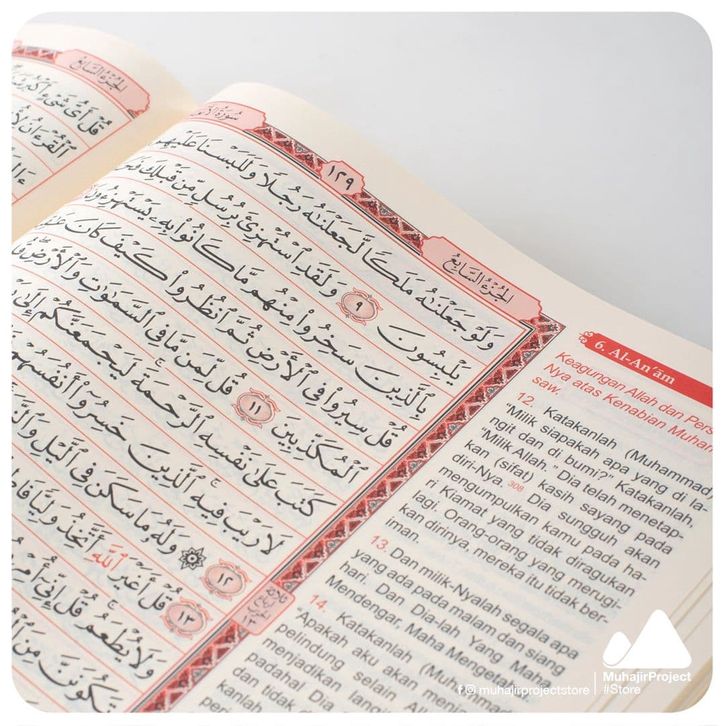 الجزء السابع
قل أي شيء أكبر
القرءان لأ
سورة الأنعا
١٢٩
الجزء السابع
ولو جعلنه ملكا لجعلنه رجلا وللبسنا عليهم
يلبسون ٩ ولقد استهزئ برسل من قبلك
بالذين سخروا منهم ما كانوا به يستهزءون
قل سيروا في الأرض ثم انظروا كيف كان
المكذبين ١١ قل لمن ما في السموت والأرض
كتب على نفسه الرحمة ليجمعنكم إلى
لا ريب فيه الذين خسروا أنفسهم
١٢ وله ما سكن في اليل
١٣ قل أغير الله أتخذ وليا
ولا يطعم قل إني
تكونن من
6. Al-An'ām
Keagungan Allah dan Pers
Nya atas Kenabian Muham
saw.
12. Katakanlah (Muhammad)
"Milik siapakah apa yang di la-
ngit dan di bumi?" Katakanlah,
"Milik Allah." Dia telah menetap-
kan (sifat) kasih sayang pada
diri-Nya. 308 Dia sungguh akan
mengumpulkan kamu pada ha-
ri Kiamat yang tidak diragukan
lagi. Orang-orang yang merugi-
kan dirinya, mereka itu tidak ber-
iman.
13. Dan milik-Nyalah segala apa
yang ada pada malam dan siang
hari. Dan Dia-lah Yang Maha
Mendengar, Maha Mengeta
14. Katakanlah (Muhamma
"Apakah aku akan menja
pelindung selain All
menjadikan lang
padahal Dia
dan tidak
kanlah
MuhajirProject
#Store
muhajirprojectstore